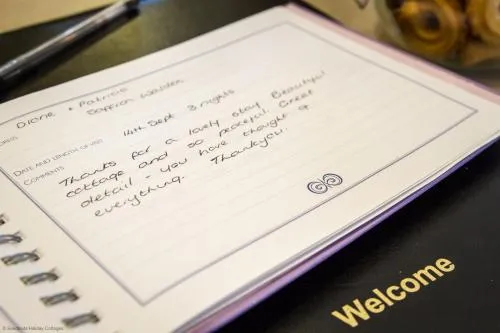 Diane + Patricia
Saffron Walden
DATE AND LENGTH OF VISIT 14th Sept 3 nights
COMMENTS
Thanks for a lovely stay. Beautiful
cottage and so peaceful. Great
detail - you have thought of
everything. Thankyou.
Welcome
Holiday Cottages